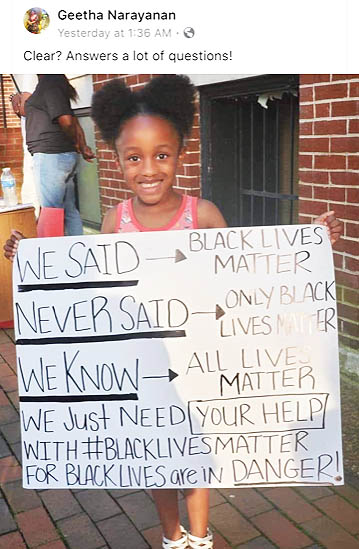 Geetha Narayanan
Yesterday at 1:36 AM ·
Clear? Answers a lot of questions!
WE SAID → BLACK LIVES
MATTER
NEVER SAID → ONLY BLACK
LIVES MATTER
WE KNOW → ALL LIVES
MATTER
WE JUST NEED YOUR HELP
WITH #BLACKLIVESMATTER
FOR BLACK LIVES are in DANGER!